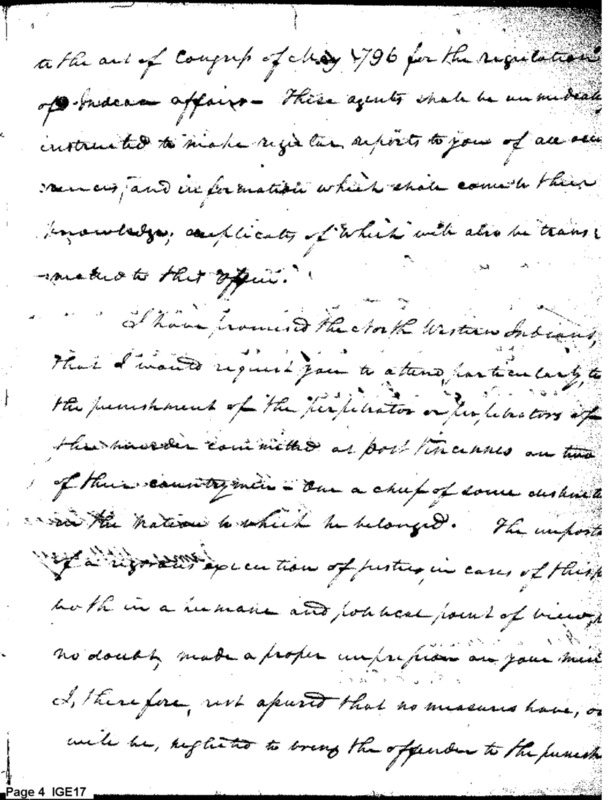 to the act of Congress of May 1796 for the regulation
of Indian affairs – These agents shall be immediat
instructed to make regular reports to you of all occu
rences, and information which shall come to their
knowledge; duplicates of which will also be trans
mitted to this office.
I have promised the North Western Indians,
that I would request you to attend, particularly, to
the punishment of the perpetrator or perpetrators of
the murder committed at post Vincennes on two
of their countrymen – One a chief of some distinct
in the nation to which he belonged. The importa
of a rigorous execution of justice, in cases of this
both in a humane and political point of view,
no doubt, made a proper impression on your mind
I, therefore, rest assured that no measures have, or
will be, neglected to bring the offender to the punish
Page 4 IGE17